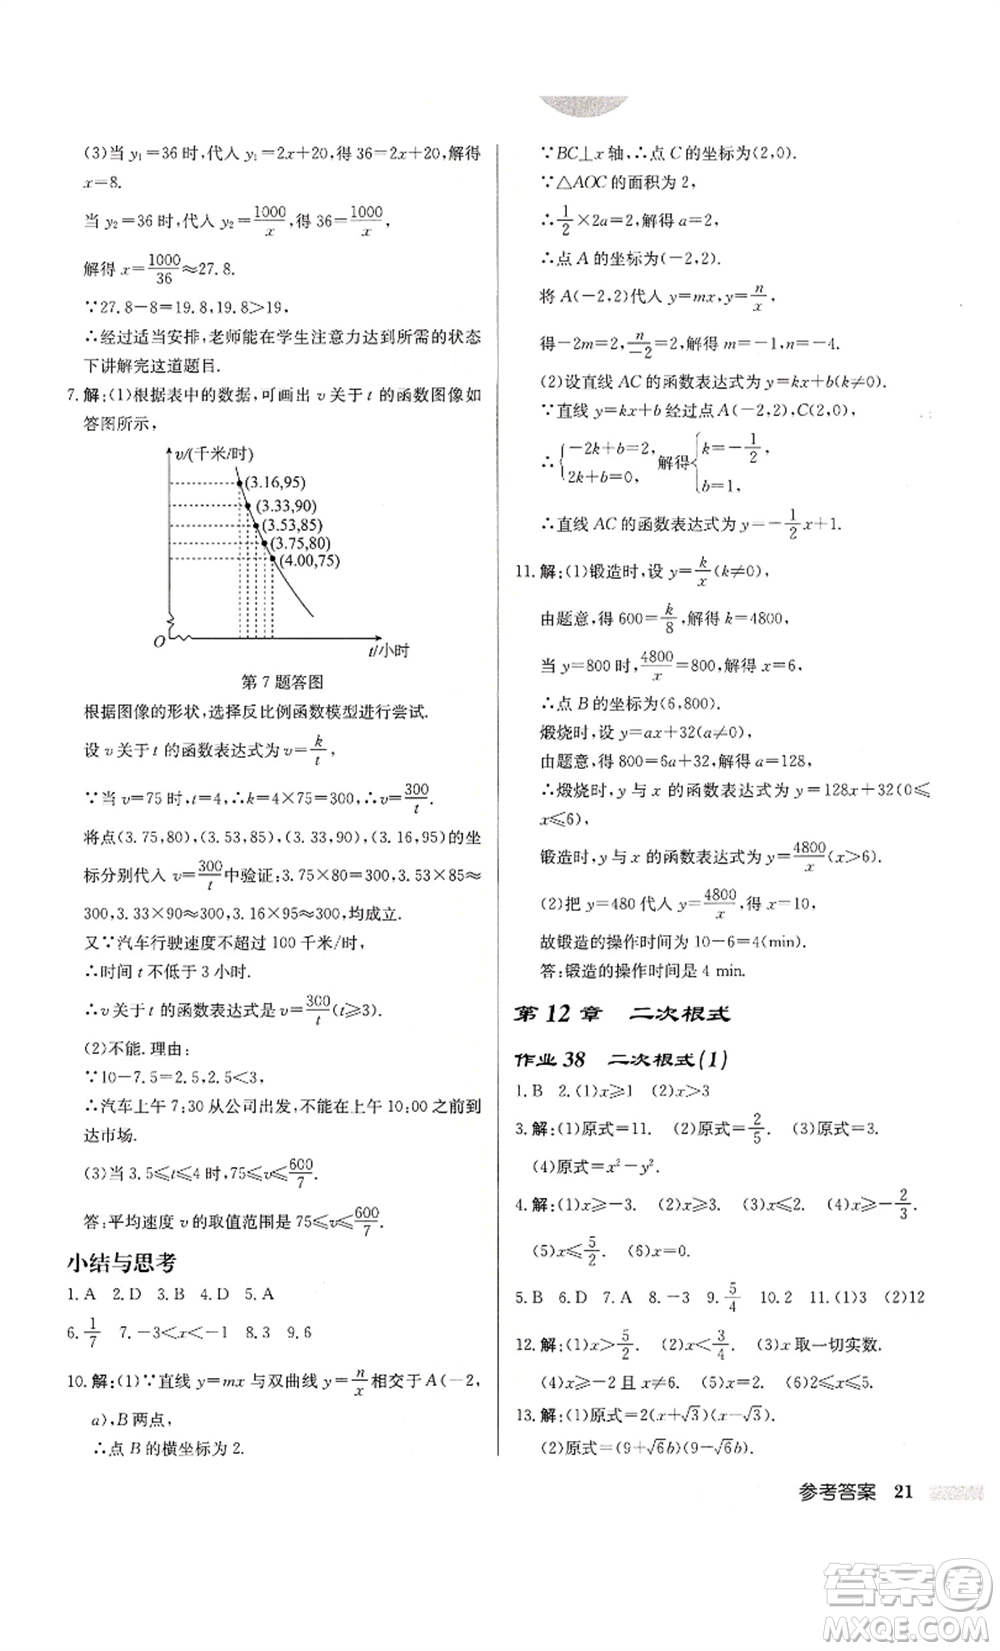 (3)当 y₁=36 时,代人 y₁=2x+20,得 36=2x+20,解得
x=8.
当 y₂=36 时,代人 y₂=1000/x,得 36=1000/x,
解得 x=1000/36≈27.8.
∵27.8-8=19.8,19.8>19,
∴经过适当安排,老师能在学生注意力达到所需的状态
下讲解完这道题目.
7.解:(1)根据表中的数据,可画出 v 关于 t 的函数图像如
答图所示,
v/(千米/时)
(3.16,95)
(3.33,90)
(3.53,85)
(3.75,80)
(4.00,75)
O
t/小时
第 7 题答图
根据图像的形状,选择反比例函数模型进行尝试.
设 v 关于 t 的函数表达式为 v=k/t,
∵当 v=75 时,t=4,∴k=4×75=300,∴v=300/t.
将点(3.75,80),(3.53,85),(3.33,90),(3.16,95)的坐
标分别代入 v=300/t中验证:3.75×80=300,3.53×85≈
300,3.33×90≈300,3.16×95≈300,均成立.
又∵汽车行驶速度不超过 100 千米/时,
∴时间 t 不低于 3 小时.
∴v 关于 t 的函数表达式为 v=300/t(t⩾3).
(2)不能.理由:
∵10-7.5=2.5,2.5<3,
∴汽车上午 7:30 从公司出发,不能在上午 10:00 之前到
达市场.
(3)当 3.5⩽t⩽4 时,75⩽v⩽600/7.
答:平均速度 v 的取值范围是 75⩽v⩽600/7.
小结与思考
1.A 2.D 3.B 4.D 5.A
6.1/7 7.-3<x<-1 8.3 9.6
10.解:(1)∵直线 y=mx 与双曲线 y=n/x相交于 A(-2,
a),B 两点,
∴点 B 的横坐标为 2.
∵BC⊥x 轴,∴点 C 的坐标为(2,0).
∵△AOC 的面积为 2,
∴1/2×2a=2,解得 a=2,
∴点 A 的坐标为(-2,2).
将 A(-2,2)代人 y=mx,y=n/x,
得-2m=2,n/-2=2,解得 m=-1,n=-4.
(2)设直线 AC 的函数表达式为 y=kx+b(k≠0).
∵直线 y=kx+b 经过点 A(-2,2),C(2,0),
∴{-2k+b=2, 2k+b=0, 解得{k=-1/2, b=1,
∴直线 AC 的函数表达式为 y=-1/2x+1.
11.解:(1)锻造时,设 y=k/x(k≠0),
由题意,得 600=k/8,解得 k=4800,
当 y=800 时,4800/x=800,解得 x=6,
∴点 B 的坐标为(6,800).
煅烧时,设 y=ax+32(a≠0),
由题意,得 800=6a+32,解得 a=128,
∴煅烧时,y 与 x 的函数表达式为 y=128x+32(0⩽
x⩽6),
锻造时,y 与 x 的函数表达式为 y=4800/x(x>6).
(2)把 y=480 代人 y=4800/x,得 x=10,
故锻造的操作时间为 10-6=4(min).
答:锻造的操作时间是 4 min.
第 12 章 二次根式
作业 38 二次根式(1)
1.B 2.(1)x⩾1 (2)x>3
3.解:(1)原式=11. (2)原式=2/5. (3)原式=3.
(4)原式=x²-y².
4.解:(1)x⩾-3. (2)x⩾3. (3)x⩾1. (4)x>-2/3.
(5)x⩽5/2. (6)x=0.
5.B 6.D 7.A 8.-3 9.5/4 10.2 11.(1)3 (2)12
12.解:(1)x>5/2. (2)x<3/4. (3)x 取一切实数.
(4)x⩾-2 且 x≠6. (5)2⩽x⩽5.
13.解:(1)原式=2(x+√3)(x-√3).
(2)原式=(9+√6b)(9-√6b).
参考答案 21
答案圈
MXQE.COM